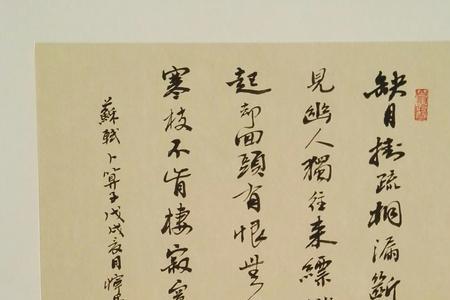 缺月掛疏桐漏斷
見幽人獨往来縹
起却回頭有恨無
寒枝不肯棲寂
蘇軾卜算子戊戌亥月